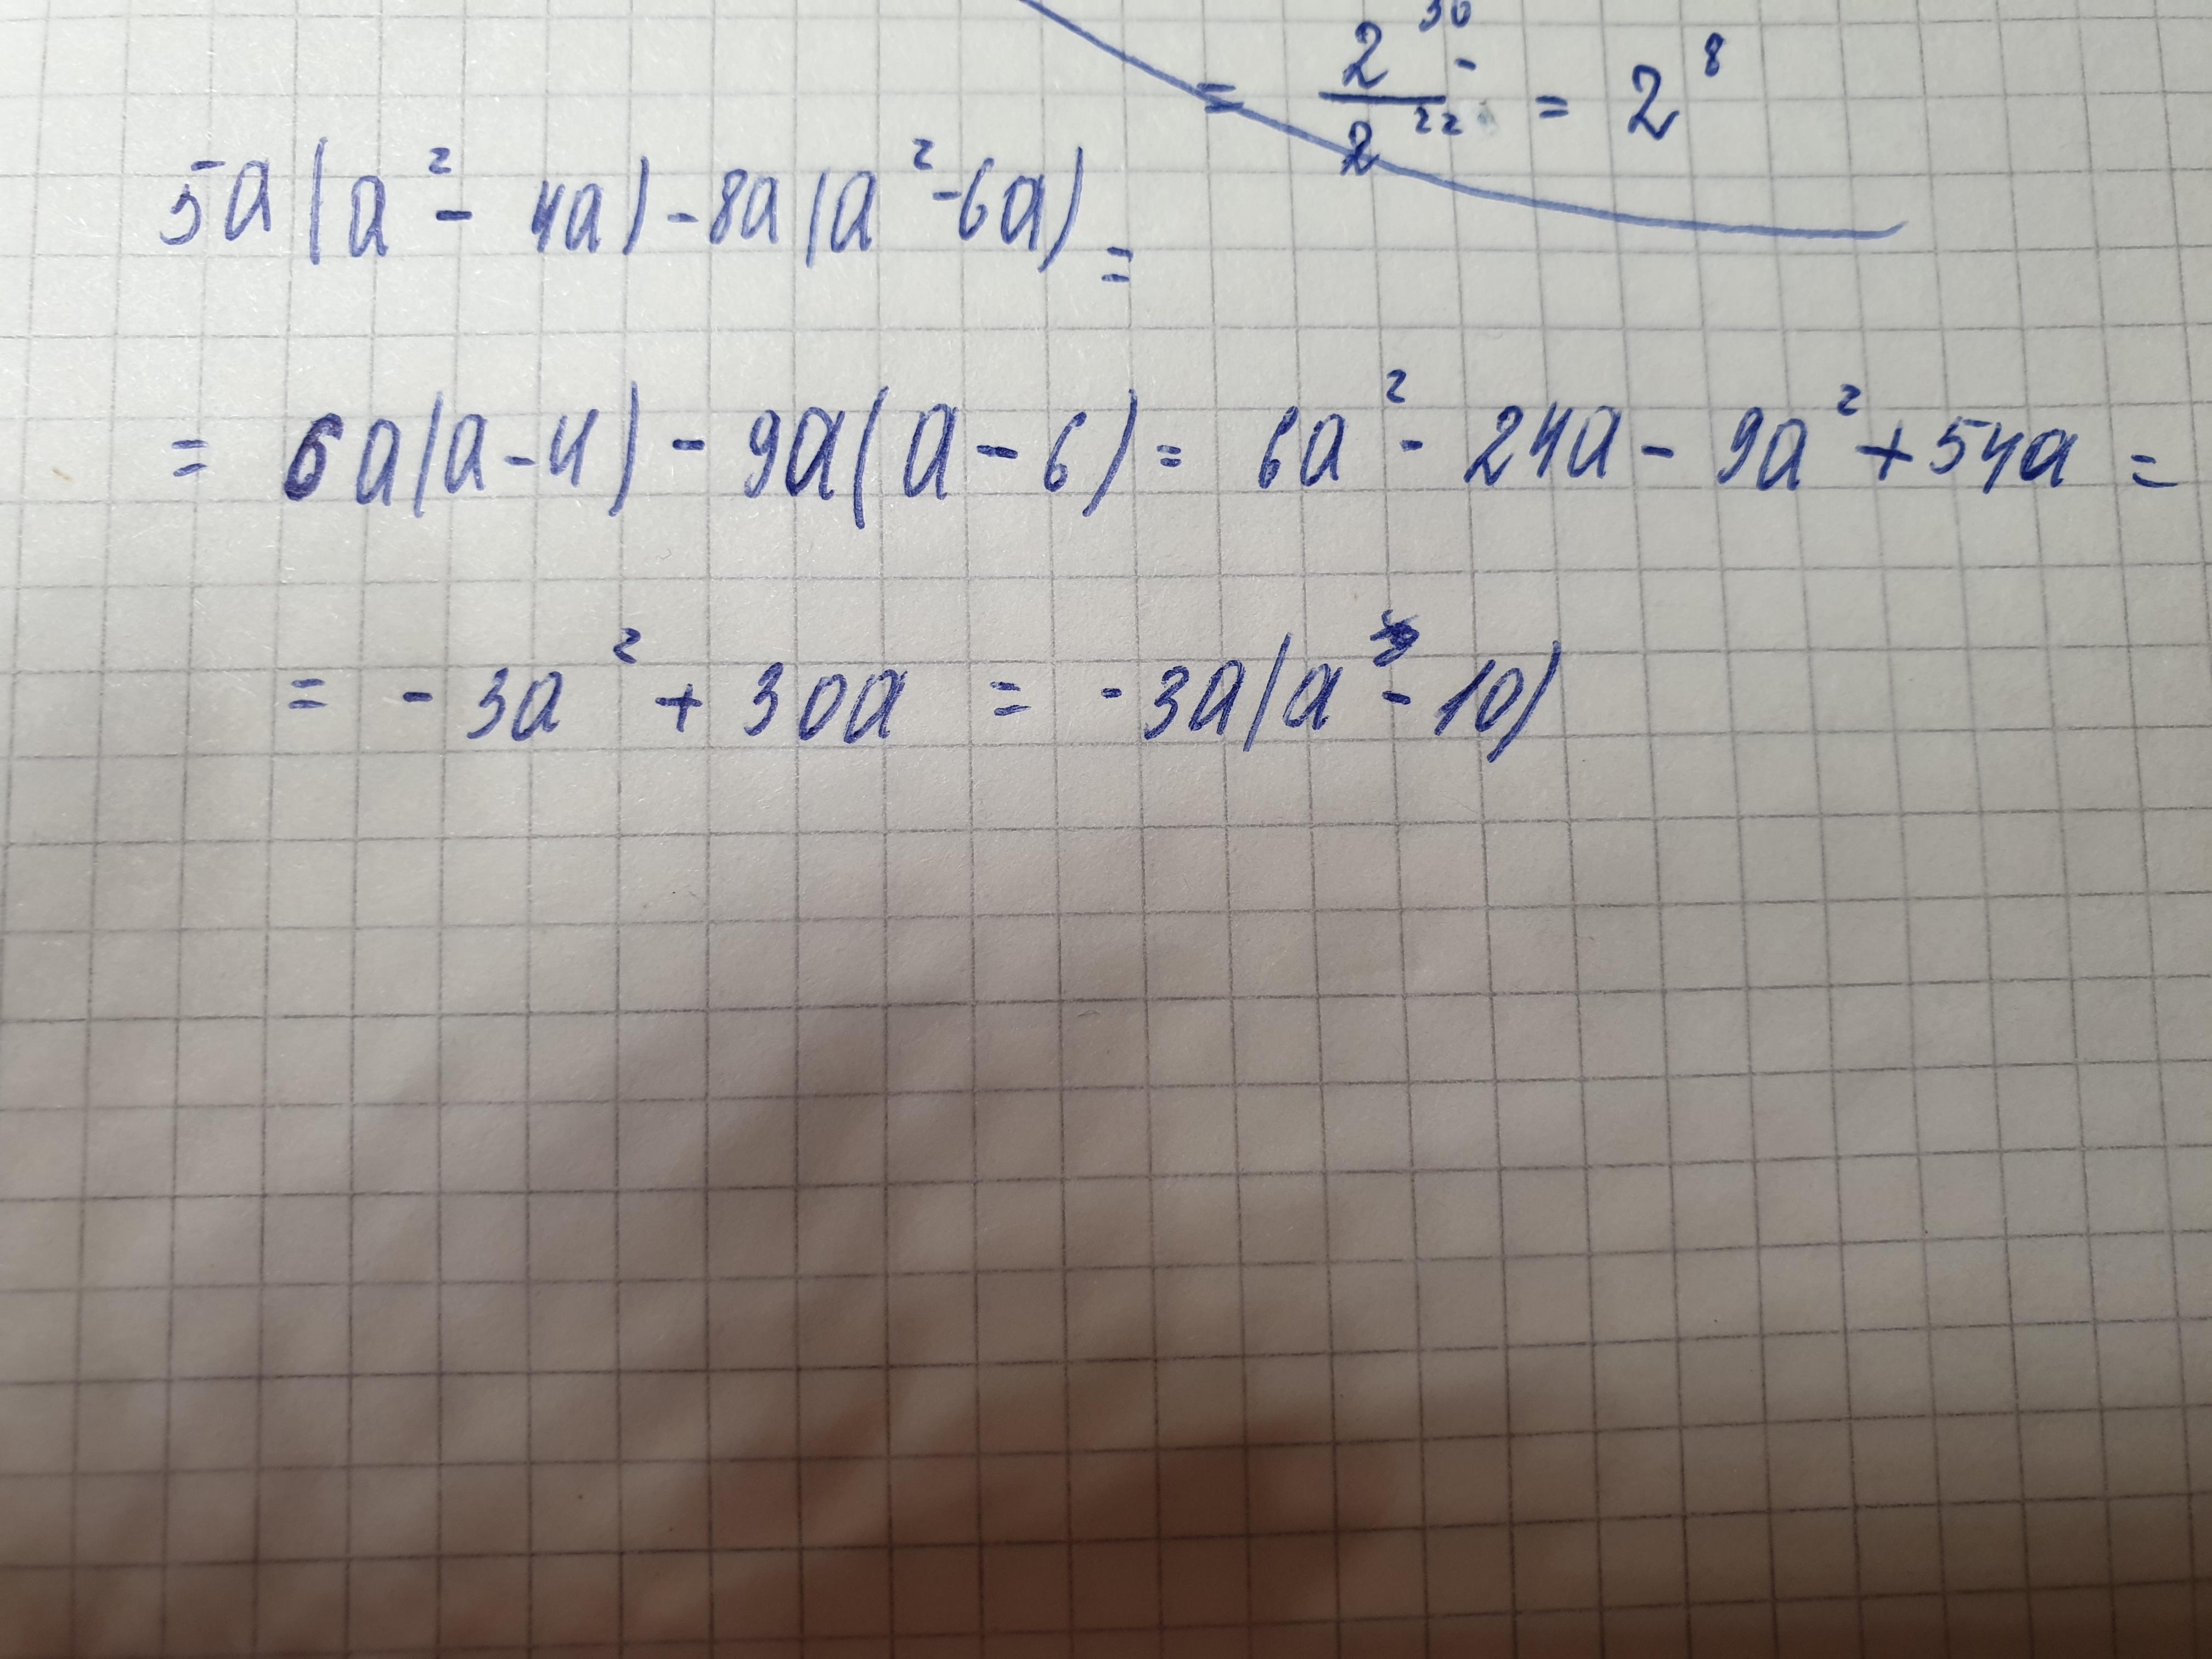 = 2³⁰/2²² = 2⁸
5a(a² - 4a) - 8a(a² - 6a) =
= 6a(a - 4) - 9a(a - 6) = 6a² - 24a - 9a² + 54a =
= - 3a² + 30a = - 3a(a - 10)